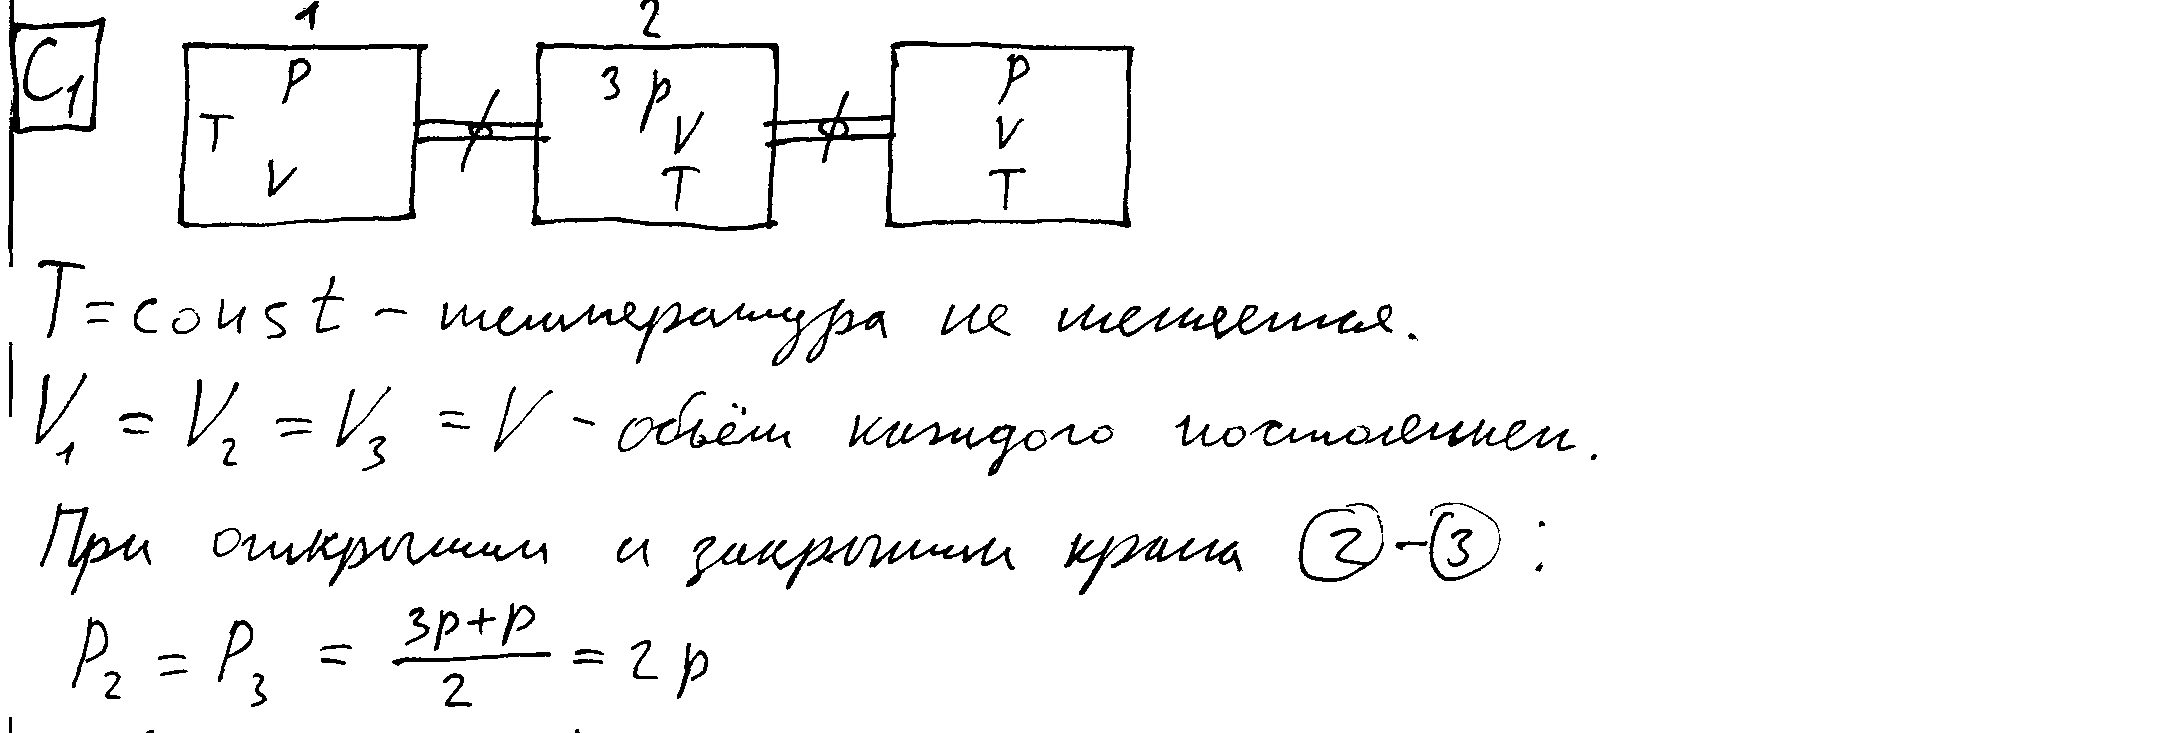 C₁
1 2
P 3p P
T V V
V T T
T = const – температура не меняется.
V₁ = V₂ = V₃ = V – объём каждого постоянен.
При открытии и закрытии крана ②–③ :
P₂ = P₃ = (3p+p)/2 = 2p